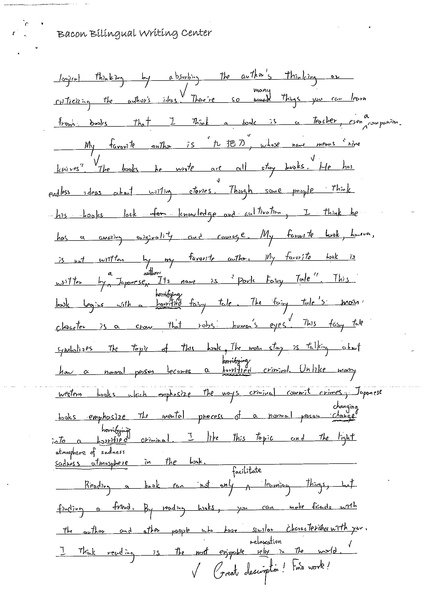 Bacon Bilingual Writing Center
logical thinking by absorbing the author's thinking or
many
criticizing the author's ideas. There're so things you can learn
from books that I think a book is a teacher, even a companion.
My favorite author is "九把刀", whose name means "nine
knives". The books he wrote are all story books. He has
endless ideas about writing stories. Though some people think
his books lack knowledge and cultivation, I think he
has a amazing originality and courage. My favorite book, however,
is not written by my favorite author. My favorite book is
author
written by a Japanese. Its name is "Dark Fairy Tale". This
horrifying
book begins with a horrified fairy tale. The fairy tale's main
character is a crow that robs human's eyes. This fairy tale
symbolizes the topic of this book. The main story is talking about
horrifying
how a normal person becomes a horrified criminal. Unlike many
western books which emphasize the ways criminal commit crimes, Japanese
changing
books emphasize the mental process of a normal person change
horrifying
into a horrified criminal. I like this topic and the light
atmosphere of sadness
sadness atmosphere in the book.
facilitate
Reading a book can not only learning things, but
finding a friend. By reading books, you can make friends with
the author and other people who have similar characteristics with you.
relaxation
I think reading is the most enjoyable relax in the world.
Great description! Fine work!